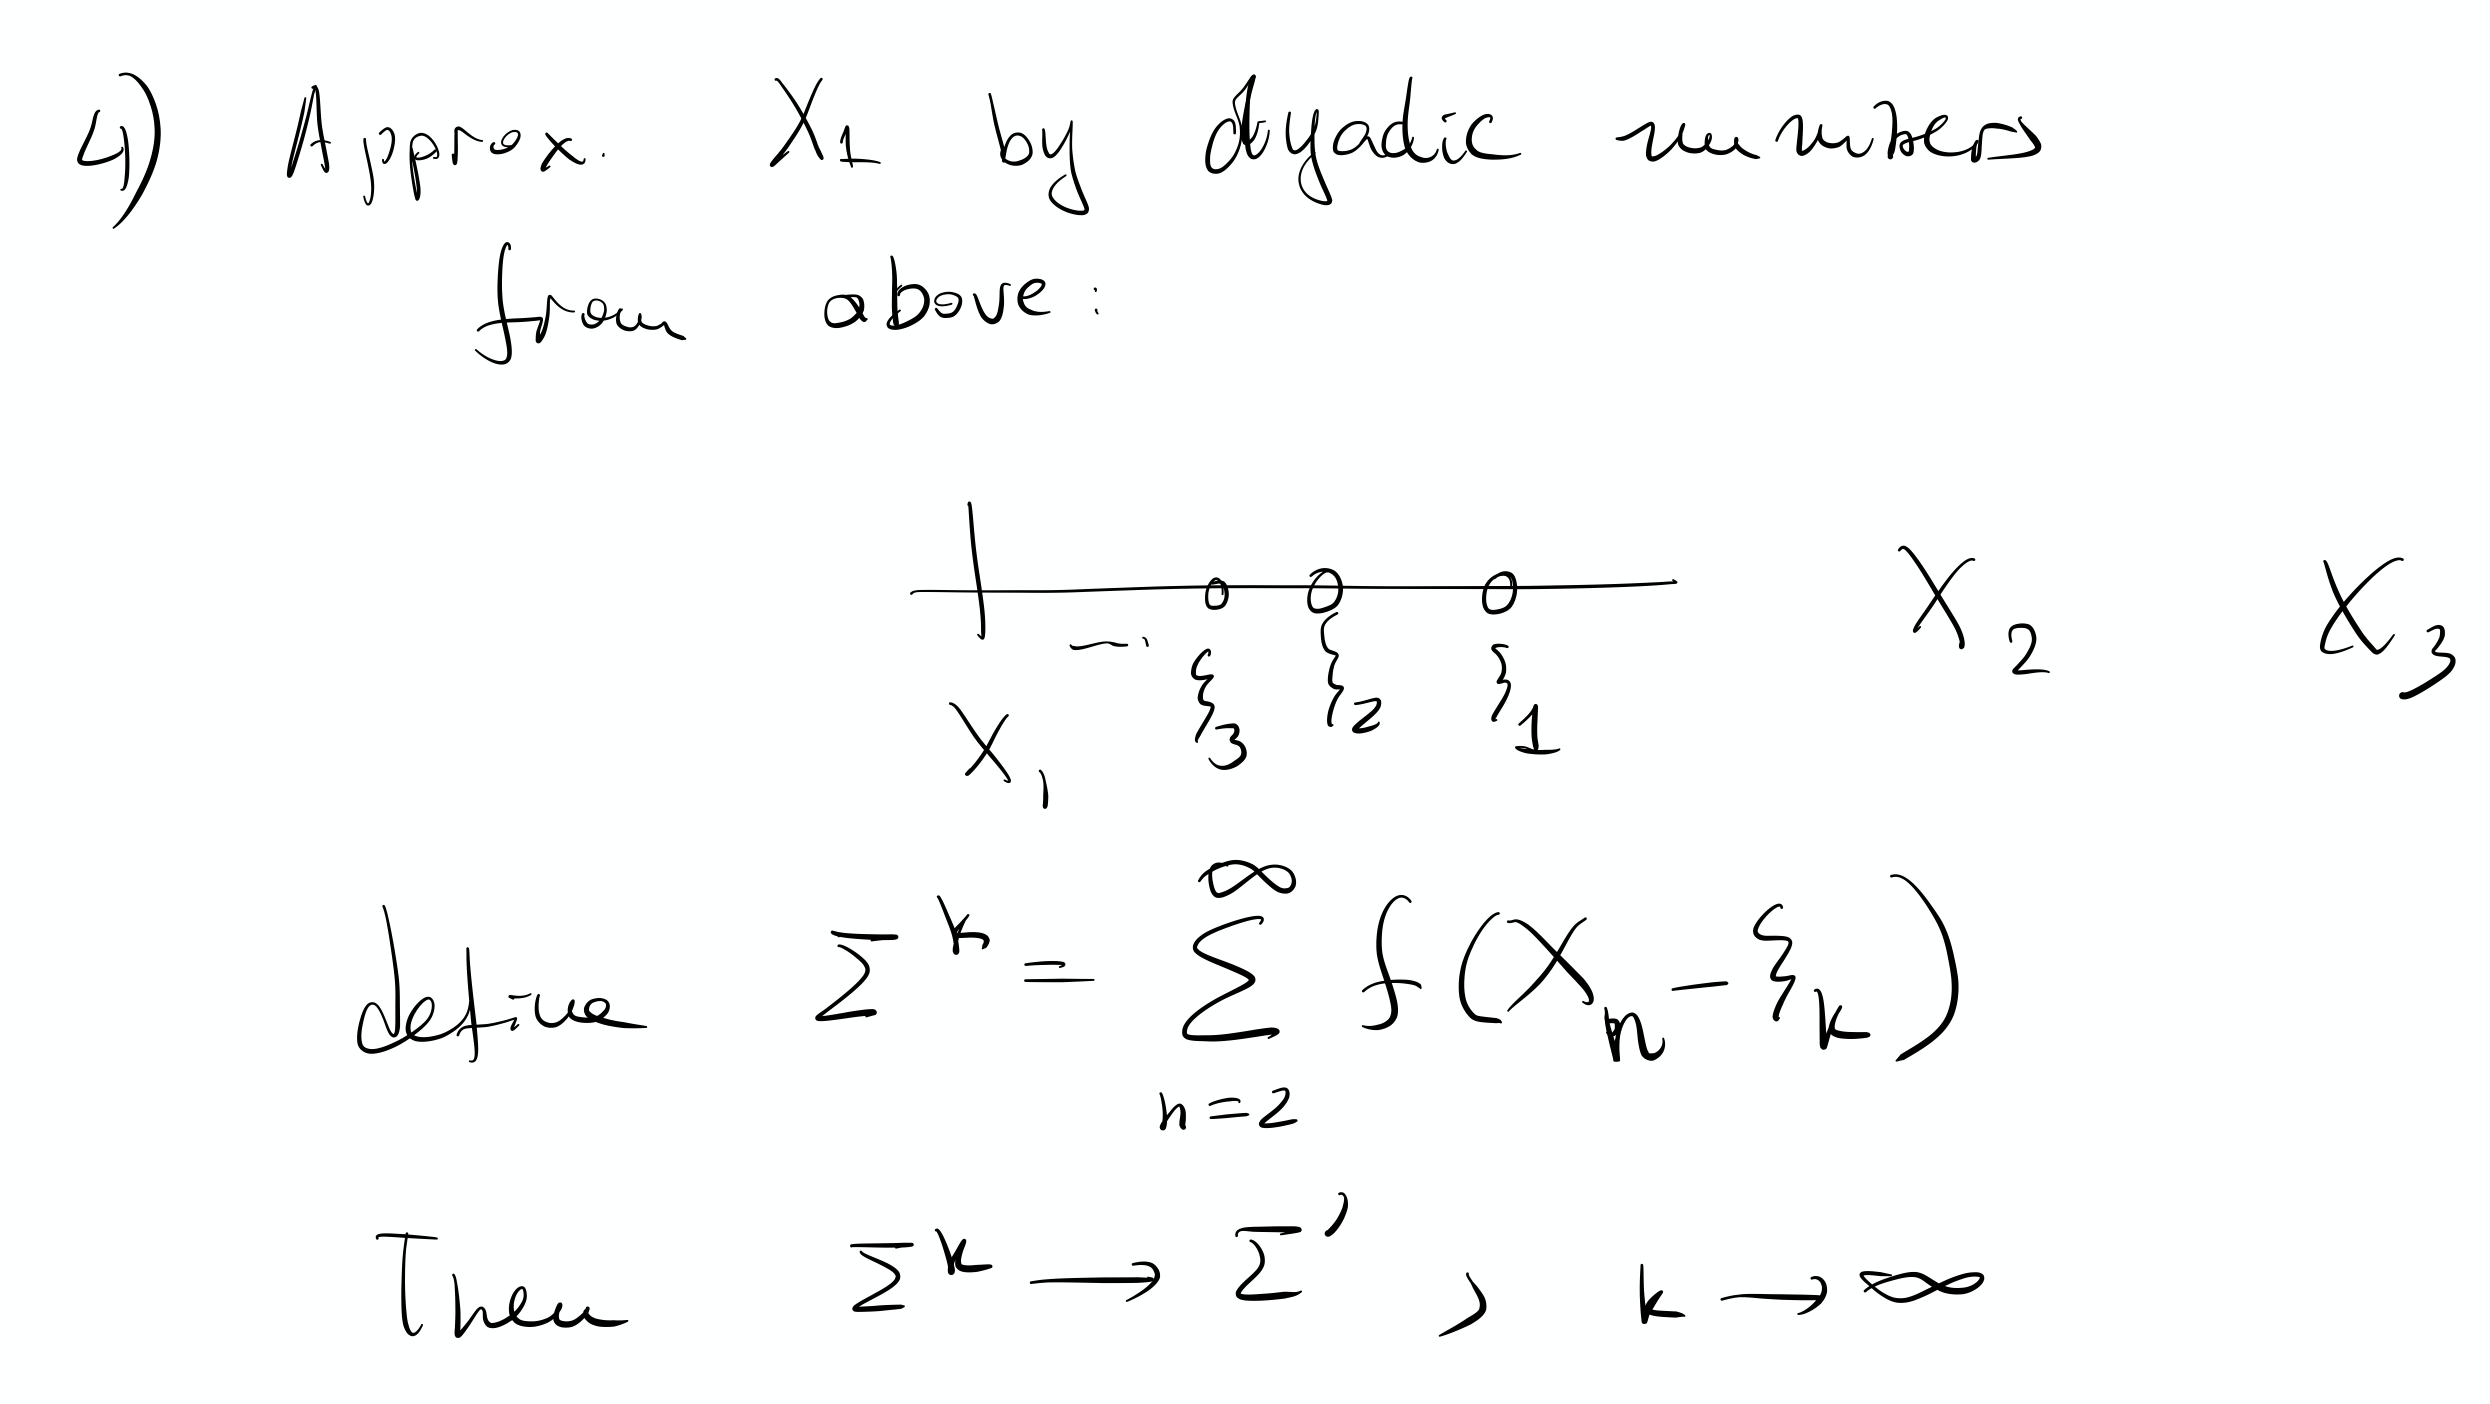 4) Approx. X₁ by dyadic numbers
from above:
X₁ ... ξ₃ ξ₂ ξ₁ X₂ X₃
define Σᵏ = ∑_{n=2}^{∞} f(Xₙ - ξₖ)
Then Σᵏ → Σ' , k → ∞